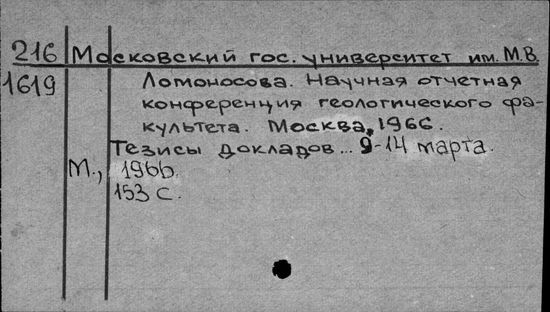 216 Московский гос. университет им. М.В.
1619 Ломоносова. Научная отчетная
конференция геологического фа-
культета. Москва, 1966.
Тезисы докладов... 9-14 марта.
М., 1966.
153 с.